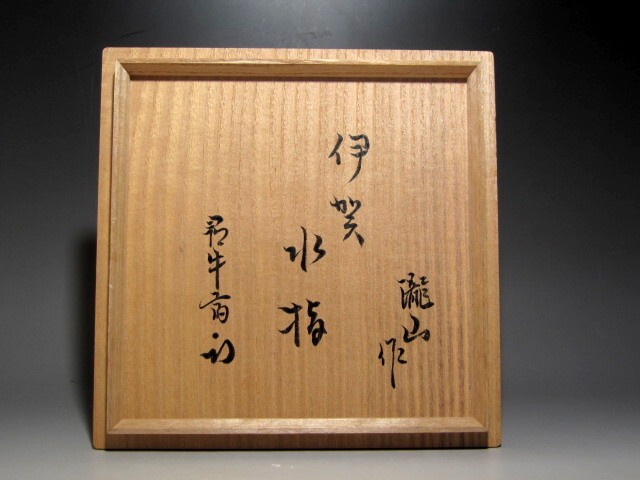 瀧山
作
伊賀
水指
尋牛斎